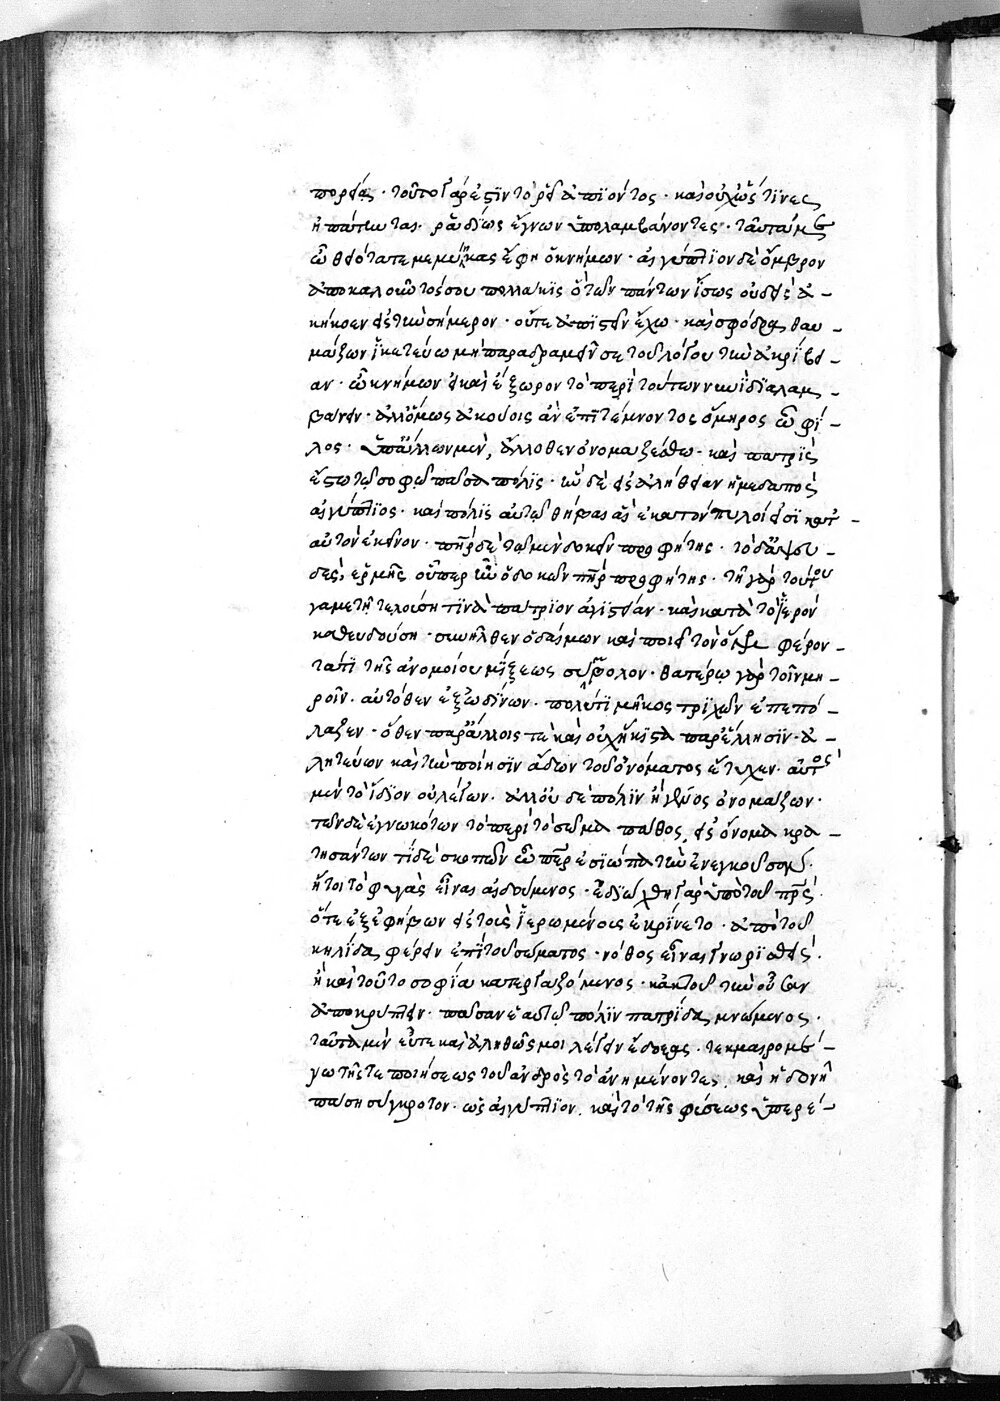 πορείας · τοῦτο γάρ ἐστιν τὸ ῥεῖ ἀπϊόντος · καὶ οὐχ ὥς τινες
ἠπάτηνται · ῥαδίως ἔγνων ὑπολαμβάνοντες · ταῦτα μὲν
ὦ θειότατε μεμύηκας ἔφη ὁ κνήμων · αἰγύπτιον δὲ ὅμηρον
ἀποκαλοῦντός σου πολλάκις ὃ τῶν πάντων ἴσως οὐδεὶς ἀ-
κήκοεν εἰς τὴν σήμερον · οὔτε ἀπιστεῖν ἔχω · καὶ σφόδρα θαυ-
μάζων ἱκετεύω μὴ παραδραμεῖν σε τοῦ λόγου τὴν ἀκρίβει-
αν · ὦ κνήμων εἰ καὶ ἔξωρον τὸ περὶ τούτων νυνὶ διαλαμ-
βάνειν · ἀλλ' ὅμως ἀκούοις ἂν ἐπιτέμνοντος ὅμηρος ὦ φί-
λος · ὑπ' ἄλλων μὲν, ἄλλοθεν ὀνομαζέσθω · καὶ πατρὶς
ἔστω τῷ σοφῷ πᾶσα πόλις · ἦν δὲ εἰς ἀλήθειαν ἡμεδαπὸς
αἰγύπτιος · καὶ πόλις αὐτῷ θῆβαι αἳ ἑκατόνπυλοί εἰσι κατ'
αὐτὸν ἐκεῖνον · πηρ δὲ τὸ μὲν δοκεῖν προφήτης · τὸ δὲ ἀψευ-
δὲς, ἑρμῆς οὗπερ ἦν ὁ δοκῶν πηρ προφήτης · τῇ γὰρ τούτου
γαμετῇ τελούσῃ τινὰ πάτριον ἁγιστείαν · καὶ κατὰ τὸ ἱερὸν
καθευδούσῃ · συνῆλθεν ὁ δαίμων καὶ ποιεῖ τὸν ὅμηρον φέρον-
τά τι τῆς ἀνομοίου μίξεως σύμβολον · θατέρῳ γὰρ τοῖν μη-
ροῖν · αὐτόθεν ἐξ ὠδίνων · πολύ τι μῆκος τριχῶν ἐπεπό-
λαζεν · ὅθεν παρ' ἄλλοις τὲ καὶ οὐχ ἥκιστα παρ' ἕλλησιν · ἀ-
λητεύων καὶ τὴν ποίησιν ᾄδων τοῦ ὀνόματος ἔτυχεν · αὐτὸς
μὲν τὸ ἴδιον οὐ λέγων · ἀλλ' οὐδὲ πόλιν ἢ γένος ὀνομάζων ·
τῶν δὲ ἐγνωκότων τὸ περὶ τὸ σῶμα πάθος, εἰς ὄνομα κρα-
τησάντων τί δὲ σκοπῶν ὦ πηρ ἐσιώπα τὴν ἐνεγκοῦσαν ·
ἤτοι τὸ φυγὰς εἶναι αἰδούμενος · ἐδιώχθη γὰρ ὑπὸ τοῦ πρς ·
ὅτε ἐξ ἐφήβων εἰς τοὺς ἱερωμένους ἐκρίνετο · ἀπὸ τοῦ
κηλῖδα φέρειν ἐπὶ τοῦ σώματος · νόθος εἶναι γνωρισθεὶς ·
ἢ καὶ τοῦτο σοφίᾳ κατεργαζόμενος · κἀκ τοῦ τὴν οὖσαν
ἀποκρύπτειν · πᾶσαν ἑαυτῷ πόλιν πατρίδα μνώμενος ·
ταῦτα μὲν εὖτε καὶ ἀληθῶς μοι λέγειν ἔδοξας · τεκμαιρομέ-
νῳ τῆς τε ποιήσεως τοῦ ἀνδρὸς τὸ ἀνημένον τε, καὶ ἡδονῇ
πάσῃ σύγκροτον · ὡς αἰγύπτιον, καὶ τὸ τῆς φύσεως ὑπερέ-